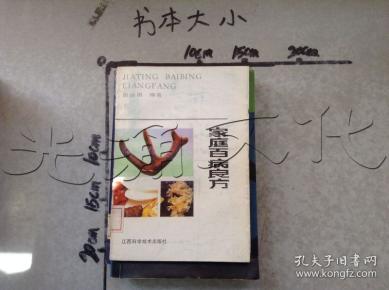 书本大小
10cm 15cm 20cm
JIATING BAIBING
LIANGFANG
编著
家庭百病良方
10cm
15cm
20cm
江西科学技术出版社
光明文化
孔夫子旧书网